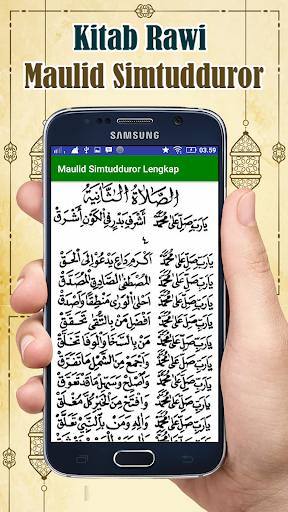 Kitab Rawi
Maulid Simtudduror
SAMSUNG
03.59
Maulid Simtudduror Lengkap
الصَّلَاةُ الثَّانِيَةُ
يَارَبِّ صَلِّ عَلَى مُحَمَّدْ أَشْرَفِ بَدْرٍ فِي الْكَوْنِ أَشْرَقْ
٤
يَارَبِّ صَلِّ عَلَى مُحَمَّدْ أَكْرَمِ دَاعٍ يَدْعُو إِلَى الْحَقْ
يَارَبِّ صَلِّ عَلَى مُحَمَّدْ الْمُصْطَفَى الصَّادِقِ الْمُصَدَّقْ
يَارَبِّ صَلِّ عَلَى مُحَمَّدْ أَحْلَى الْوَرَى مَنْطِقًا وَأَصْدَقْ
يَارَبِّ صَلِّ عَلَى مُحَمَّدْ أَفْضَلِ مَنْ بِالتُّقَى تَحَقَّقْ
يَارَبِّ صَلِّ عَلَى مُحَمَّدْ مَنْ بِالسَّخَا وَالْوَفَا تَخَلَّقْ
يَارَبِّ صَلِّ عَلَى مُحَمَّدْ وَاجْمَعْ مِنَ الشَّمْلِ مَا تَفَرَّقْ
يَارَبِّ صَلِّ عَلَى مُحَمَّدْ وَاصْلِحْ وَسَهِّلْ مَا قَدْ تَعَوَّقْ
يَارَبِّ صَلِّ عَلَى مُحَمَّدْ وَافْتَحْ مِنَ الْخَيْرِ كُلَّ مُغْلَقْ
يَارَبِّ صَلِّ عَلَى مُحَمَّدْ وَآلِهِ وَمَنْ بِالنَّبِيِّ تَعَلَّقْ